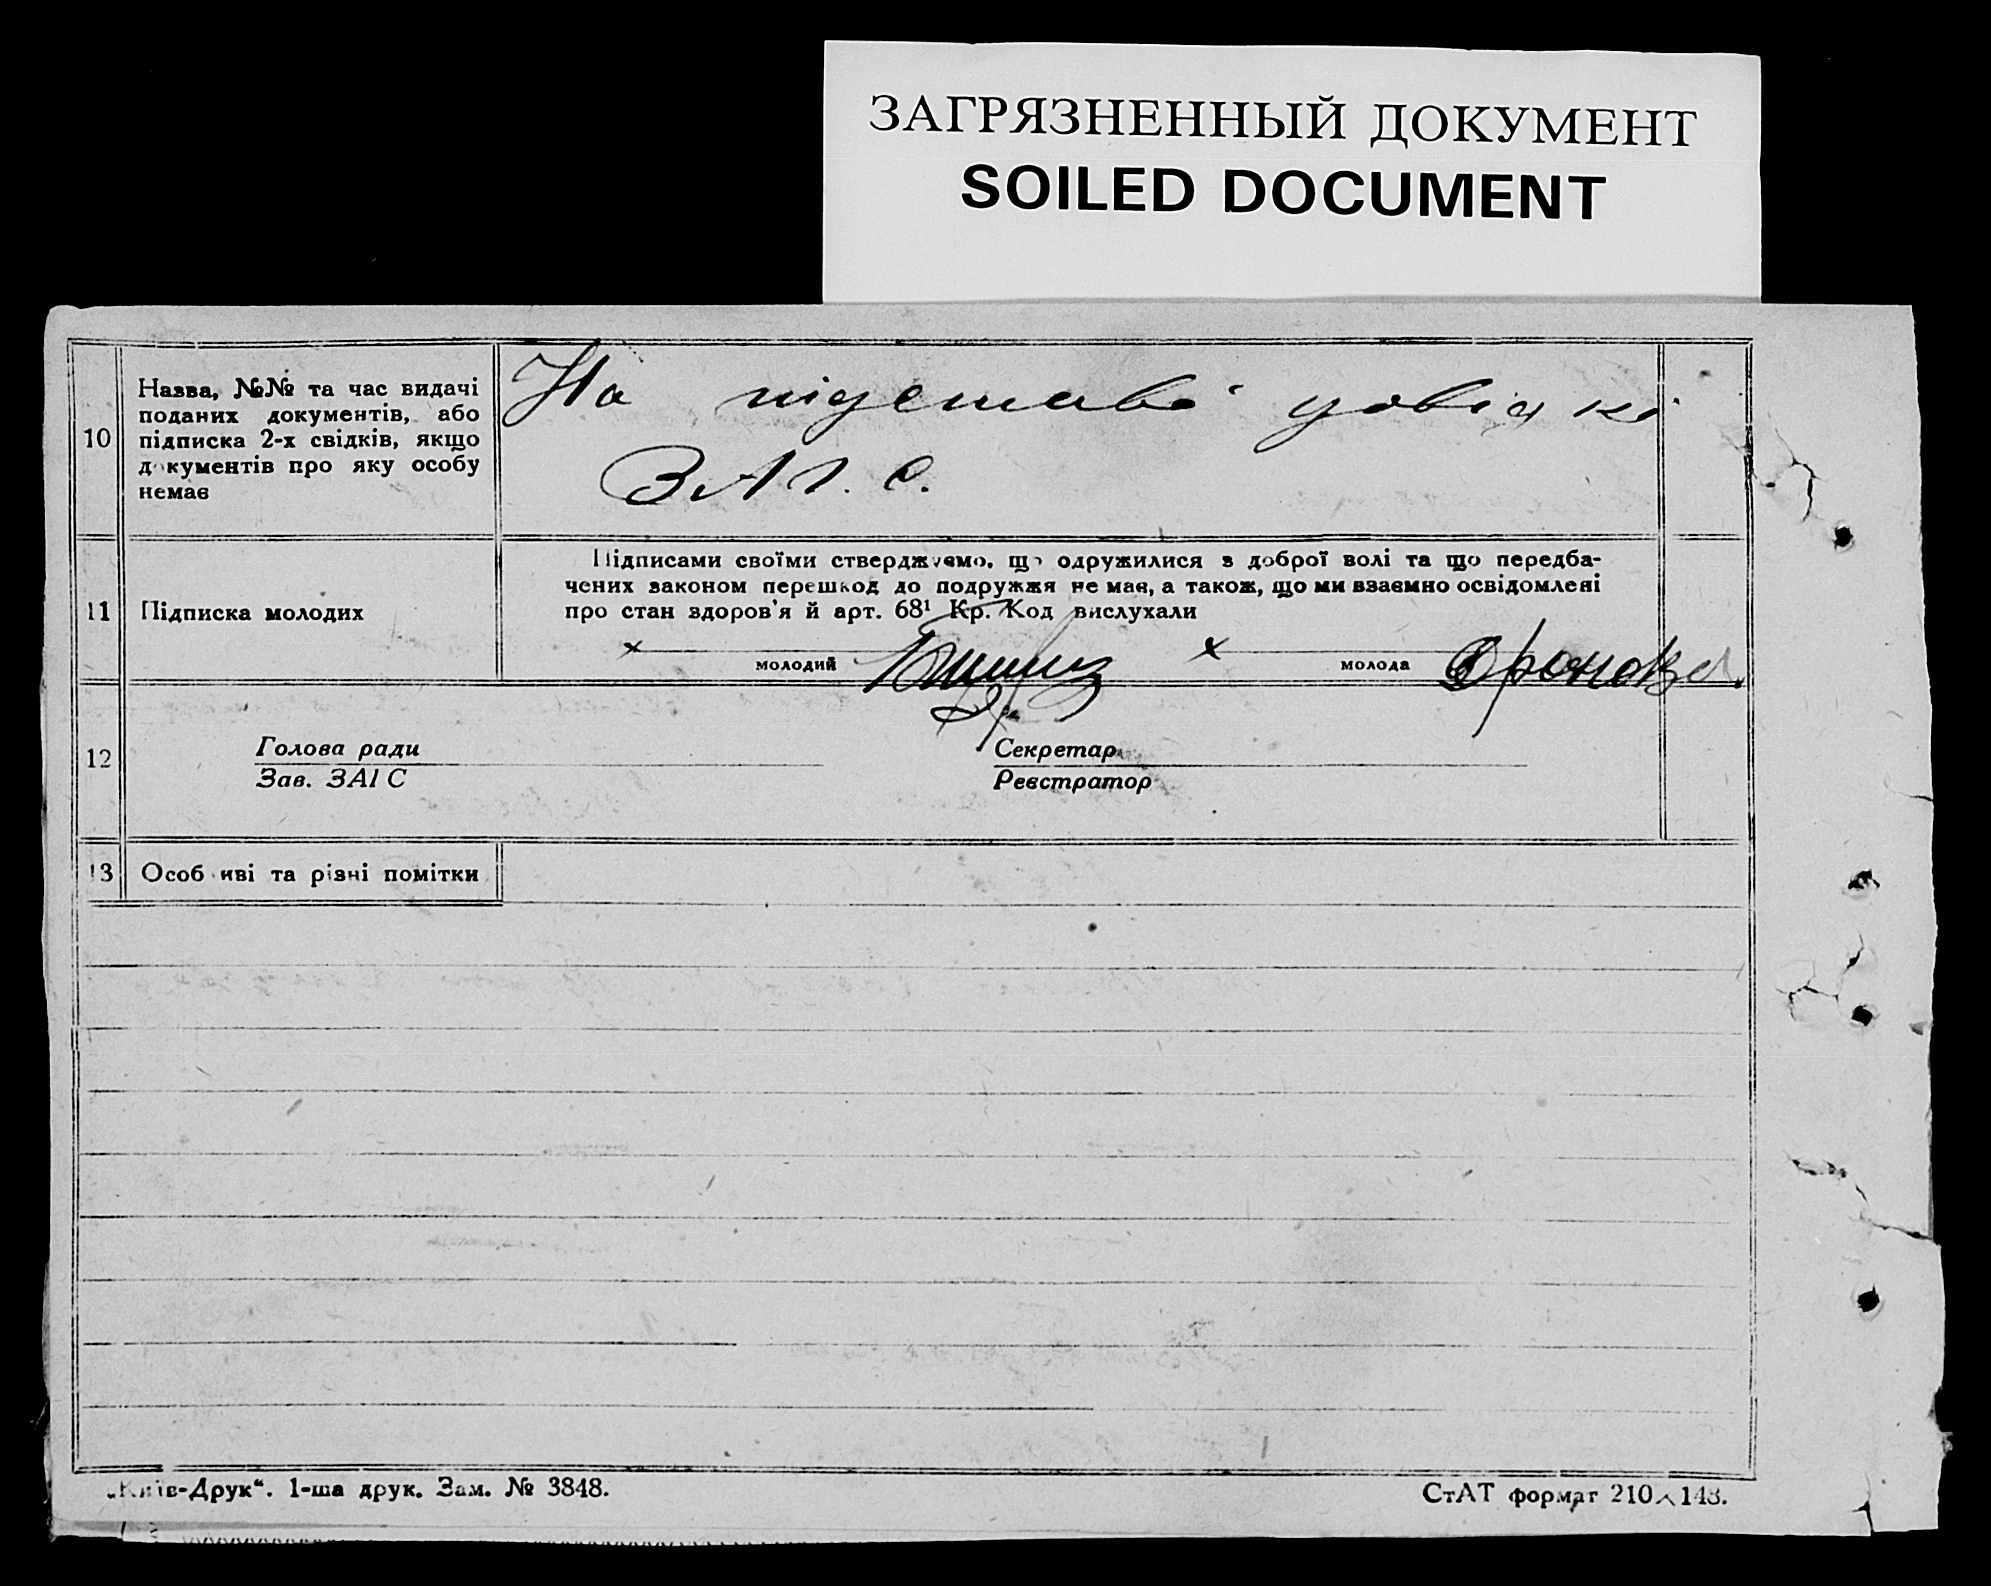 ЗАГРЯЗНЕННЫЙ ДОКУМЕНТ
SOILED DOCUMENT
10
Назва, №№ та час видачі
поданих документів, або
підписка 2-х свідків, якщо
д кументів про яку особу
немає
На підставі довідки
ЗАГ. С.
11
Підписка молодих
Підписами своїми стверджуємо, що одружилися з доброї волі та що передба-
чених законом перешкод до подружжя не має, а також, що ми взаємно освідомлені
про стан здоров'я й арт. 68¹ Кр. Код вислухали
х молодий х молода
12
Голова ради
Зав. ЗАГС
Секретар
Реєстратор
13
Особ иві та різні помітки
„Київ-Друк“. 1-ша друк. Зам. № 3848.
СтАТ формат 210×148.